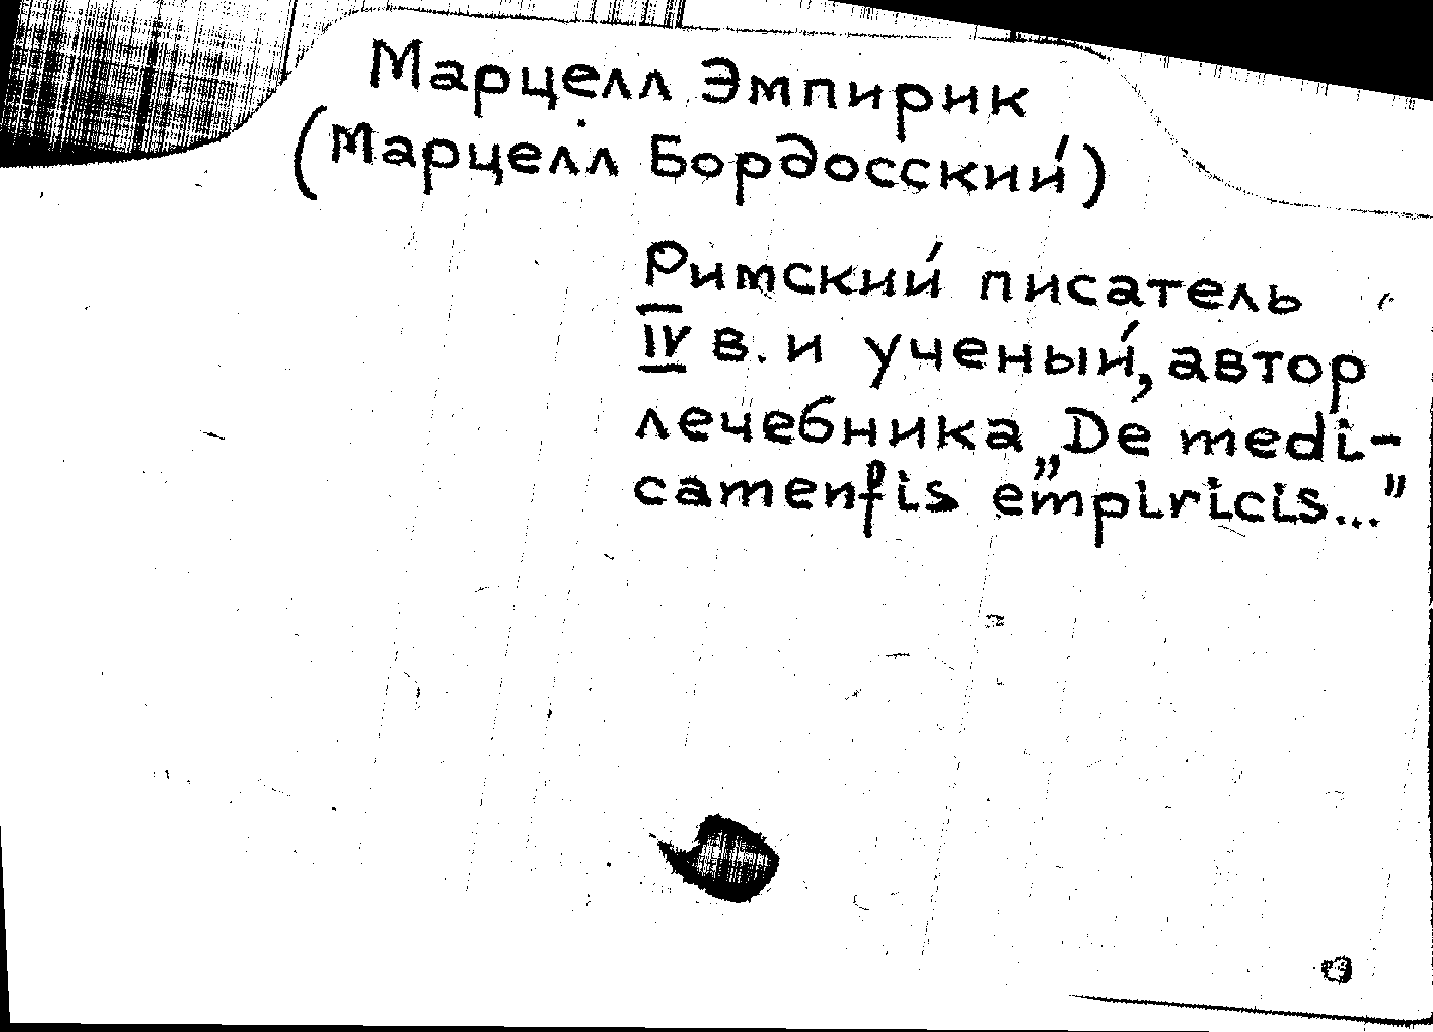 Марцелл Эмпирик
(Марцелл Бордосский)
Римский писатель
IV в. и ученый, автор
лечебника „De medi-
camentis empiricis..."